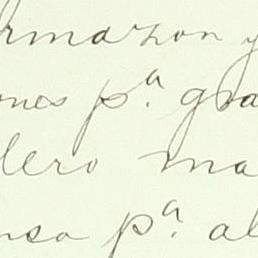 rmazon y
ones p.ª gra
lero ma
nsa p.ª al